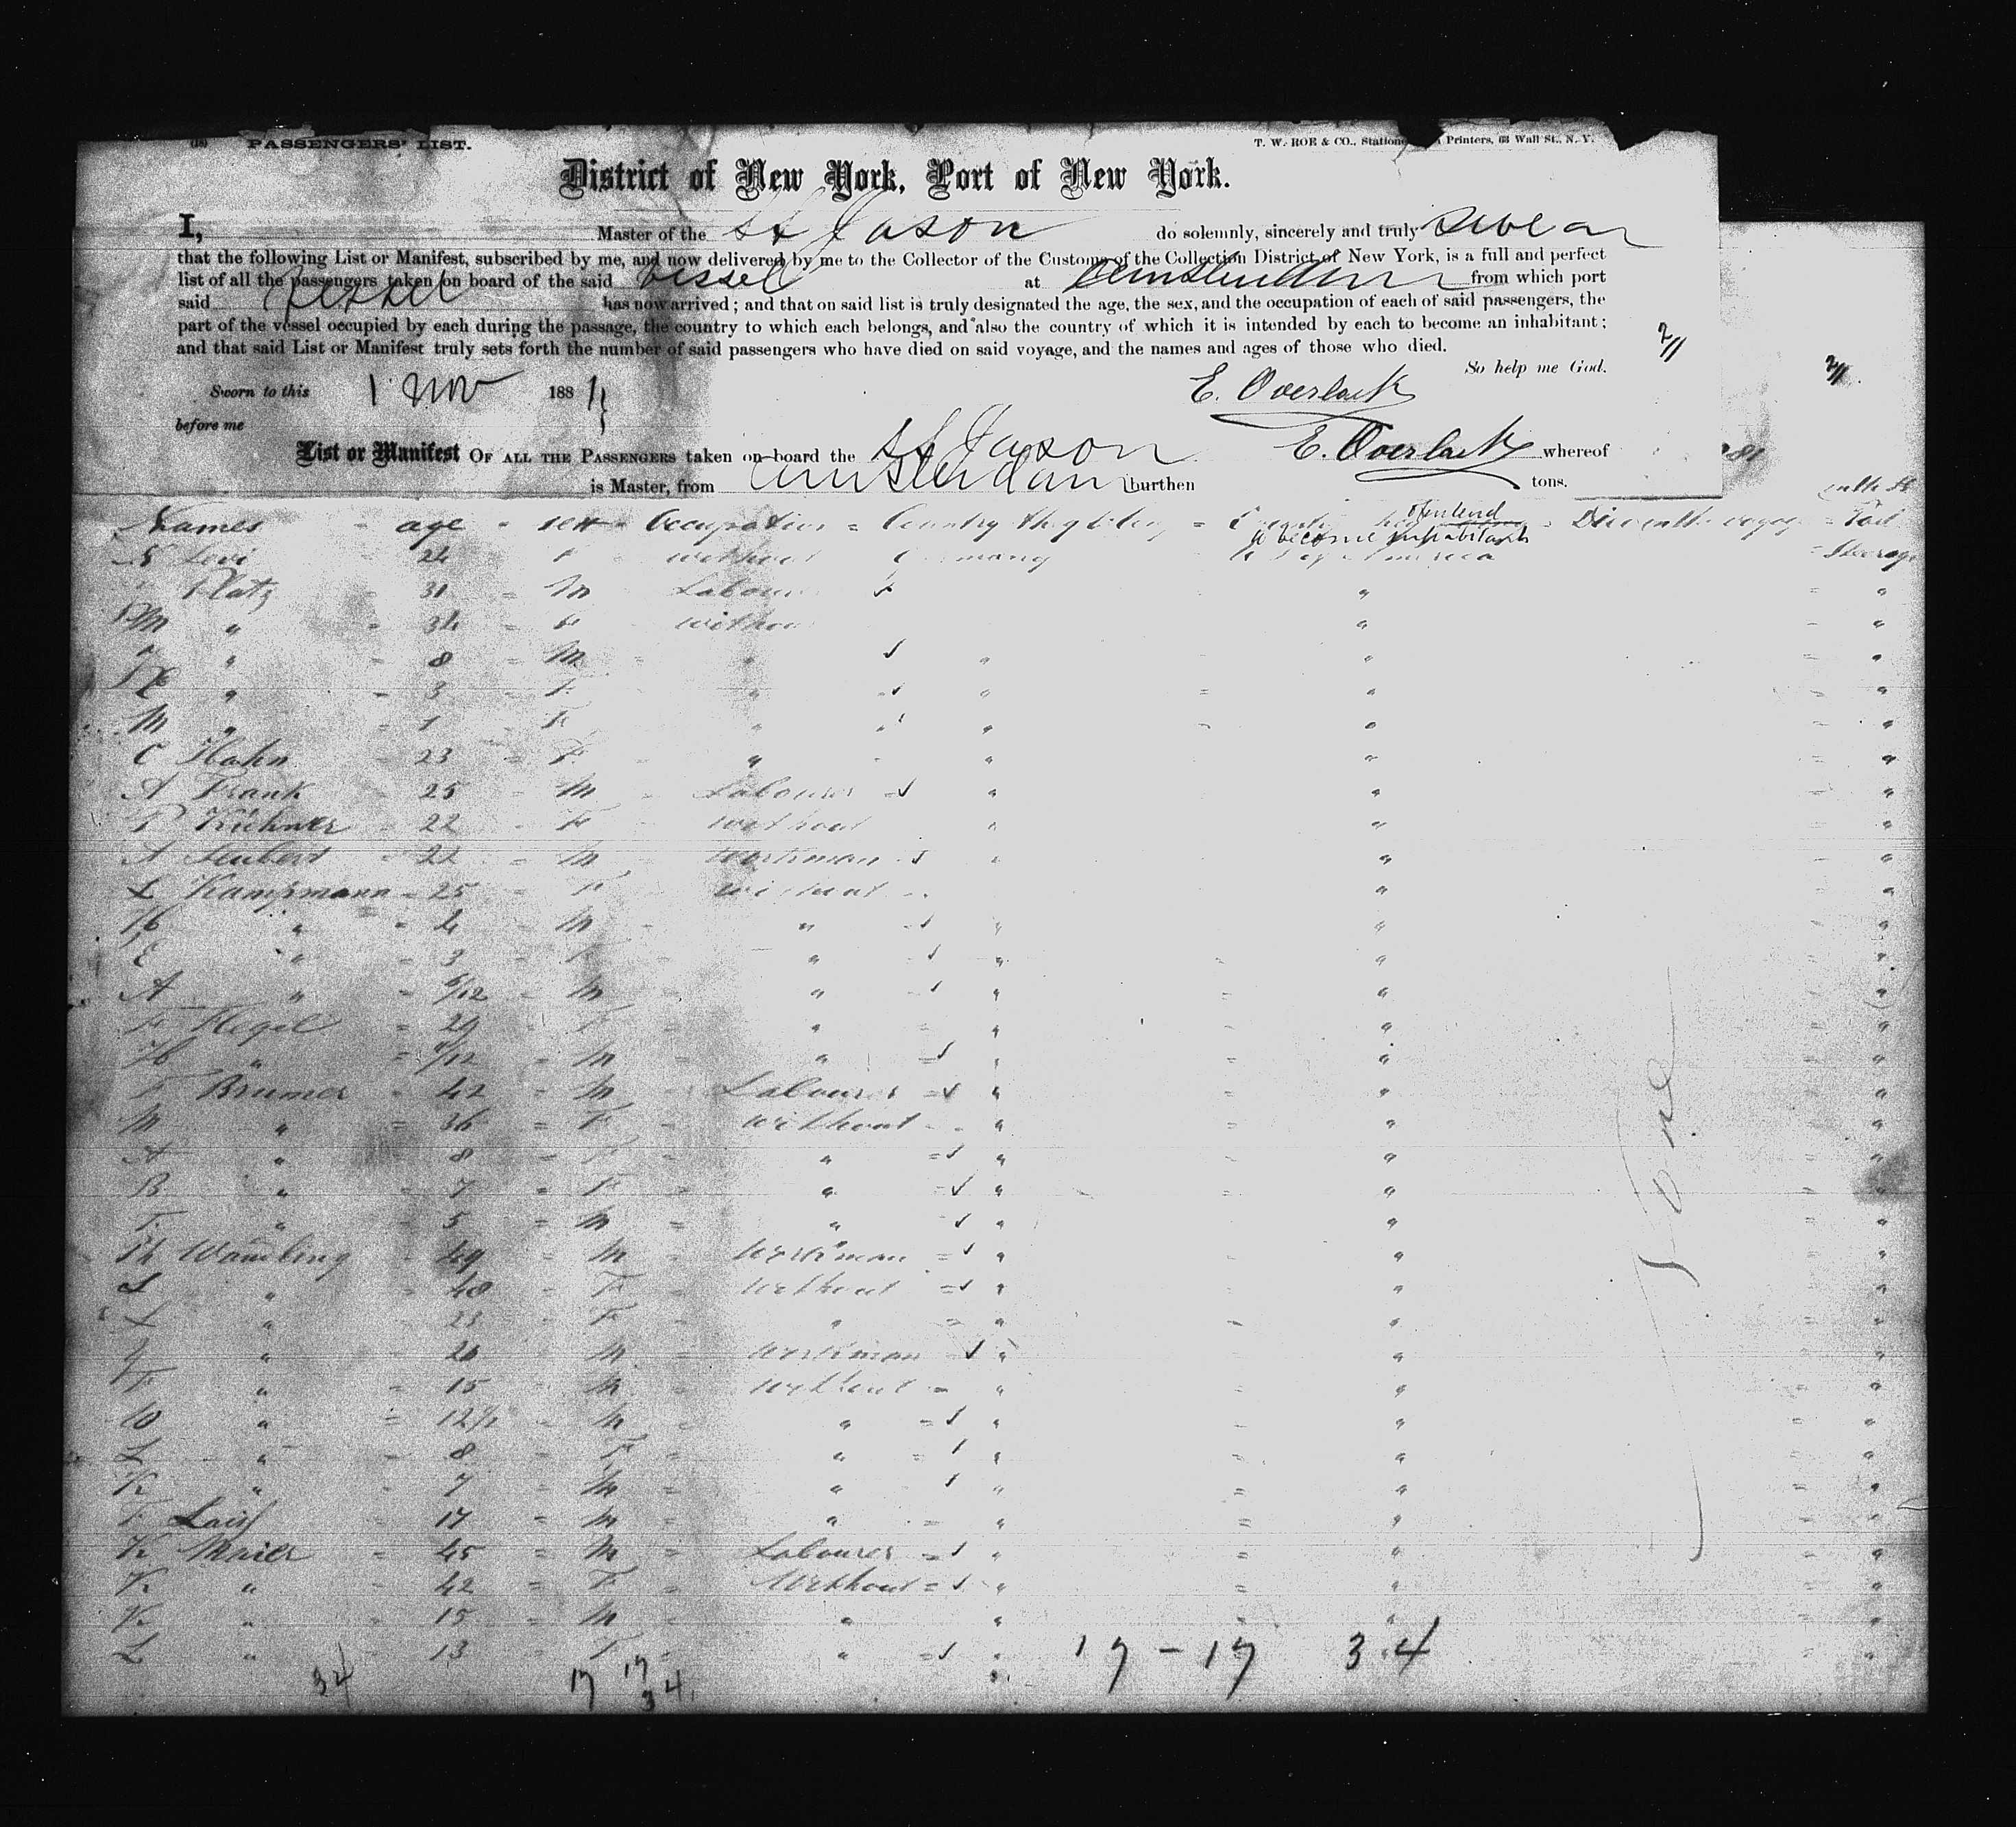 PASSENGERS' LIST.
T. W. ROE & CO., Printers, 63 Wall St., N. Y.
District of New York, Port of New York.
I, Master of the SS Jason do solemnly, sincerely and truly swear
that the following List or Manifest, subscribed by me, and now delivered by me to the Collector of the Customs of the Collection District of New York, is a full and perfect
list of all the passengers taken on board of the said vessel at Amsterdam from which port
said vessel has now arrived; and that on said list is truly designated the age, the sex, and the occupation of each of said passengers, the
part of the vessel occupied by each during the passage, the country to which each belongs, and also the country of which it is intended by each to become an inhabitant;
and that said List or Manifest truly sets forth the number of said passengers who have died on said voyage, and the names and ages of those who died.
So help me God.
Sworn to this 1 Nov 1881
E. Overlack
before me
List or Manifest OF ALL THE PASSENGERS taken on board the SS Jason E. Overlack whereof
is Master, from Amsterdam burthen tons.
Names = age = sex = Occupation = Country they belong =
to become inhabitants
Levi 24 F without America Steerage
Platz 31 M Labour "
M " 34 F "
" 8 M " " "
" 3 F " " "
M " 1 F " " "
C Hahn 23 F " " "
A Frank 25 M Labourer " "
P Kirchner 22 F without " "
A Seubert 22 M Workman " "
L Kampmann 25 F without "
" 4 M " " "
E " 3 F " " "
A " 6/12 M " " "
F Flegel 29 F " " "
" /12 M " " "
F Brumer 42 M Labourer " "
M " 36 F without " "
A " 8 F " " "
B " 7 F " " "
F " 5 M " " "
Ph Wambling 49 M Workman " "
L " 48 F without " "
L " 23 F " " "
" 20 M Workman " "
F " 15 M without " "
W " 12 M " " "
L " 8 F " " "
K " 7 M " " "
F 17 M " " "
K Maier 45 M Labourer " "
K " 42 F Without " "
K " 15 M " " "
L " 13 F " "
17 - 17 34
34 17 17
34
None